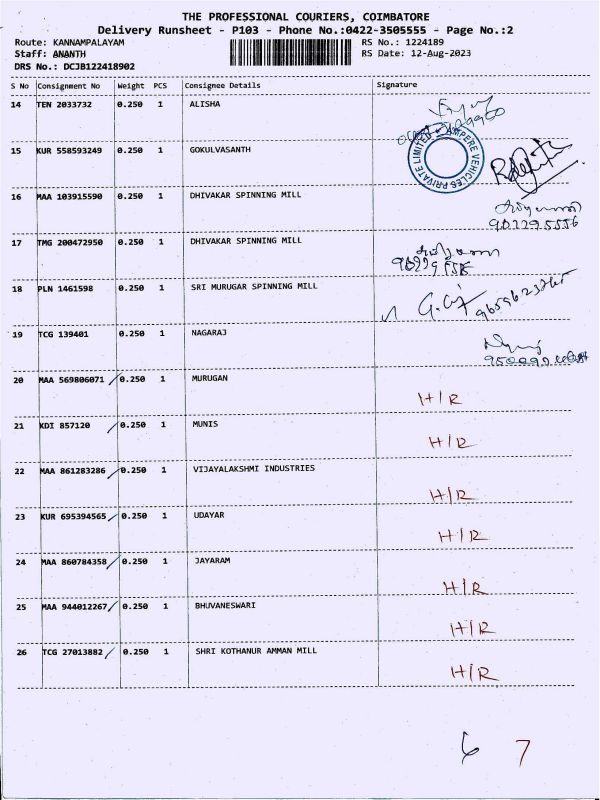 THE PROFESSIONAL COURIERS, COIMBATORE
Delivery Runsheet - P103 - Phone No.:0422-3505555 - Page No.:2
Route: KANNAMPALAYAM RS No.: 1224189
Staff: ANANTH RS Date: 12-Aug-2023
DRS No.: DCJB122418902
S No Consignment No Weight PCS Consignee Details Signature
14 TEN 2033732 0.250 1 ALISHA
AMPERE VEHICLES PRIVATE LIMITED
15 KUR 558593249 0.250 1 GOKULVASANTH
16 MAA 103915590 0.250 1 DHIVAKAR SPINNING MILL
17 TMG 200472950 0.250 1 DHIVAKAR SPINNING MILL
18 PLN 1461598 0.250 1 SRI MURUGAR SPINNING MILL
19 TCG 139401 0.250 1 NAGARAJ
20 MAA 569806071 0.250 1 MURUGAN H/R
21 KDI 857120 0.250 1 MUNIS H/R
22 MAA 861283286 0.250 1 VIJAYALAKSHMI INDUSTRIES H/R
23 KUR 695394565 0.250 1 UDAYAR H/R
24 MAA 860784358 0.250 1 JAYARAM H/R
25 MAA 944012267 0.250 1 BHUVANESWARI H/R
26 TCG 27013882 0.250 1 SHRI KOTHANUR AMMAN MILL H/R
6 7